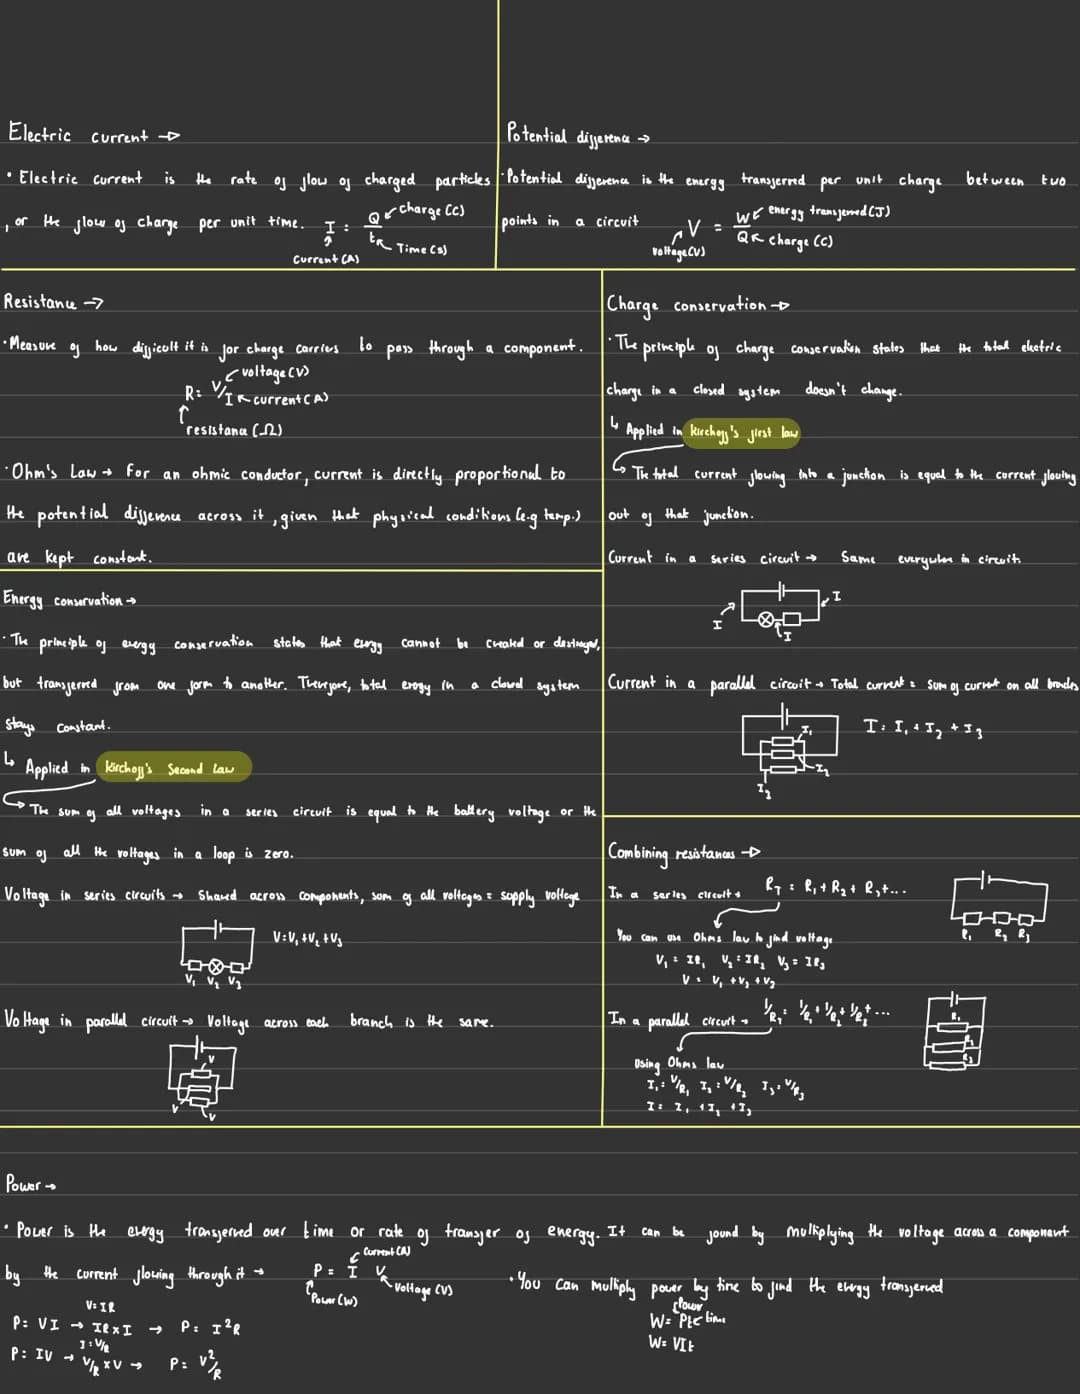 Electric current →
• Electric current is the rate of flow of charged particles
, or the flow of charge per unit time. I = Q/t
Charge (C)
Time (s)
Current (A)
Potential difference →
• Potential difference is the energy transferred per unit charge between two
points in a circuit V = W/Q
energy transferred (J)
charge (C)
voltage (V)
Resistance →
• Measure of how difficult it is for charge carries to pass through a component.
R = V/I
voltage (V)
current (A)
resistance (Ω)
• Ohm's Law → For an ohmic conductor, current is directly proportional to
the potential difference across it, given that physical conditions (e.g temp.)
are kept constant.
Charge conservation →
• The principle of charge conservation states that the total electric
charge in a closed system doesn't change.
↳ Applied in Kirchoff's first law
↳ The total current flowing into a junction is equal to the current flowing
out of that junction.
Current in a series circuit → Same everywhere in circuit.
I
I
I
Current in a parallel circuit → Total current = sum of current on all branches
I = I₁ + I₂ + I₃
I₁
I₂
I₃
Energy conservation →
• The principle of energy conservation states that energy cannot be created or destroyed,
but transferred from one form to another. Therefore, total energy in a closed system
stays constant.
↳ Applied in Kirchoff's Second Law
↳ The sum of all voltages in a series circuit is equal to the battery voltage or the
sum of all the voltages in a loop is zero.
Voltage in series circuits → Shared across components, sum of all voltages = supply voltage
V = V₁ + V₂ + V₃
V₁ V₂ V₃
Voltage in parallel circuit → Voltage across each branch is the same.
V
V
V
Combining resistances →
In a series circuit → R_T = R₁ + R₂ + R₃ + ...
R₁ R₂ R₃
You can use Ohms law to find voltage
V₁ = IR₁ V₂ = IR₂ V₃ = IR₃
V = V₁ + V₂ + V₃
In a parallel circuit → 1/R_T = 1/R₁ + 1/R₂ + 1/R₃ + ...
R₁
R₂
R₃
Using Ohms law
I₁ = V/R₁ I₂ = V/R₂ I₃ = V/R₃
I = I₁ + I₂ + I₃
Power →
• Power is the energy transferred over time or rate of transfer of energy. It can be found by multiplying the voltage across a component
by the current flowing through it → P = I V
Current (A)
Power (W)
Voltage (V)
• You can multiply power by time to find the energy transferred
Power
W = Pt ← time
W = VIt
V = IR
P = VI → IR × I → P = I²R
I = V/R
P = IV → V/R × V → P = V²/R